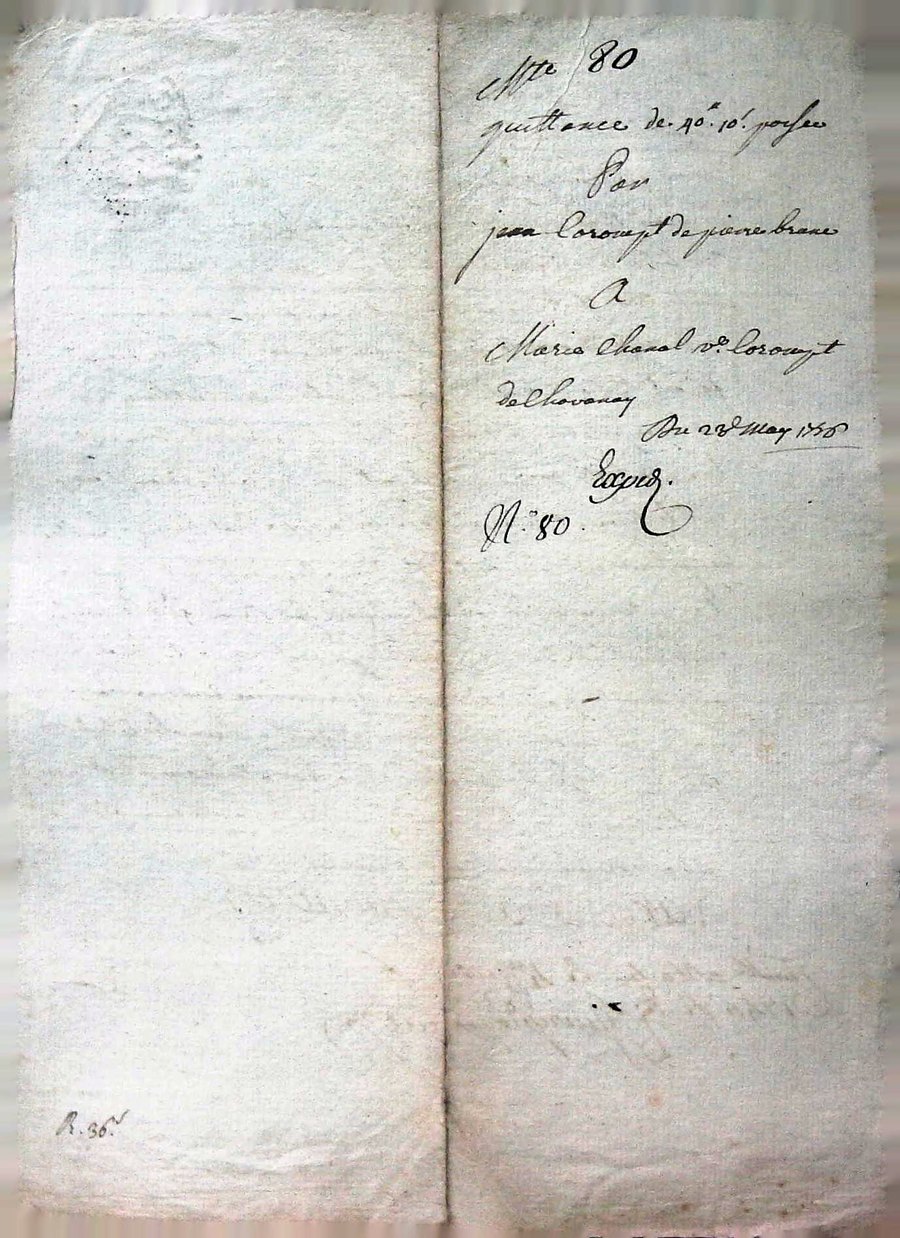 Mte 80
quittance de 40ʰ. 10ˢ. passée
Par
jean Corompt de pierre brune
A
Marie Chanal ve. Corompt
de Chavanay
Du 23e May 1756
Exped.
N.º 80.
R. 36ˢ